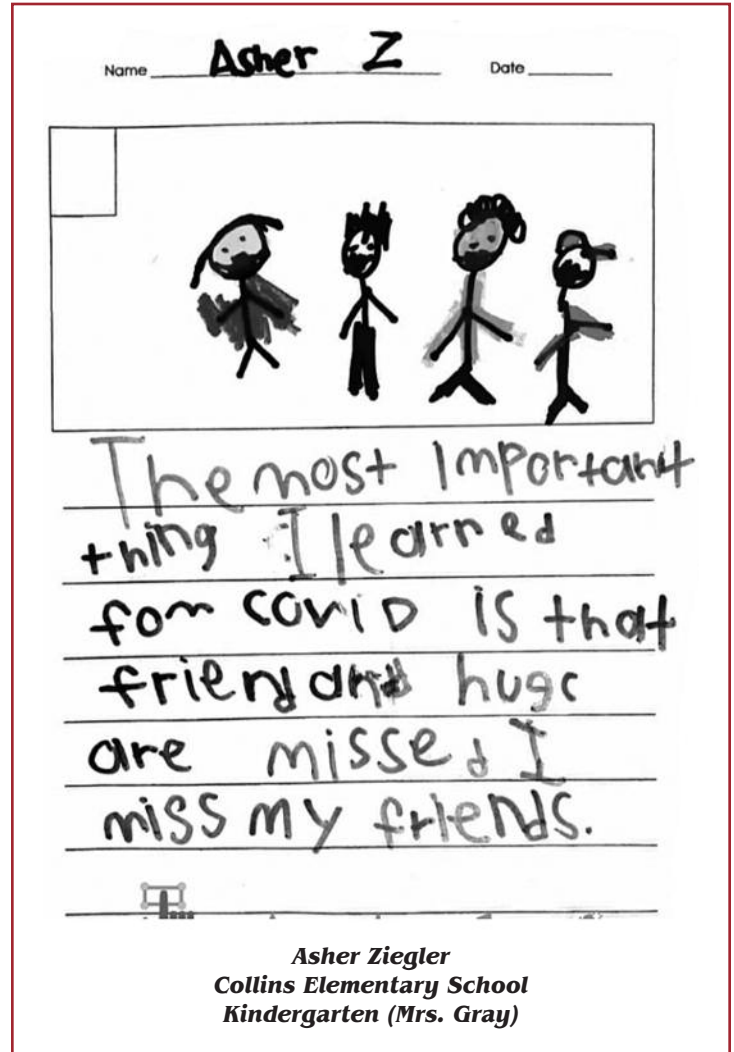 Name Asher Z Date
The most important
thing I learned
fom covid is that
friend and hugs
are missed I
miss my friends.
Asher Ziegler
Collins Elementary School
Kindergarten (Mrs. Gray)